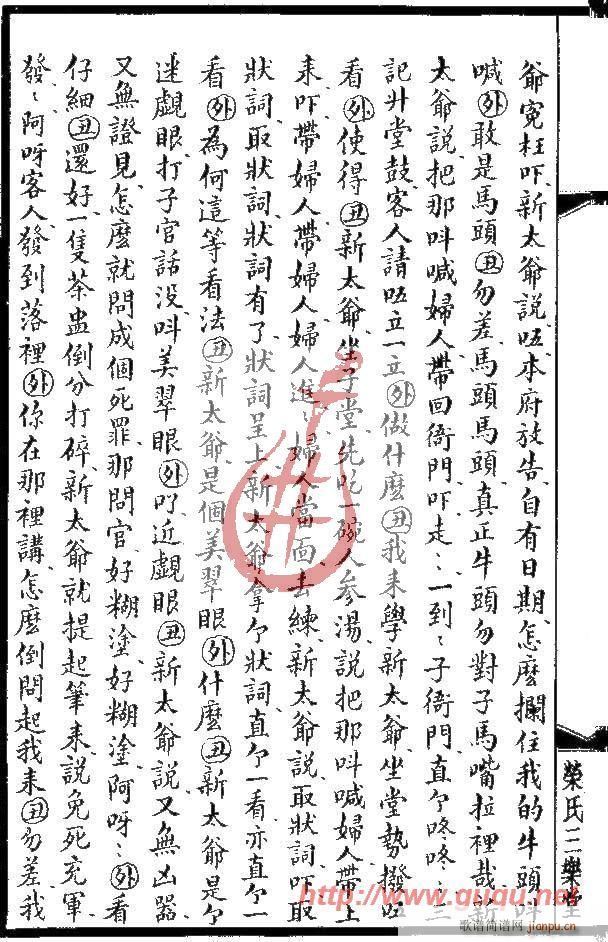 爺寃枉吓新太爺說㕶本府放告自有日期怎麽攔住我的牛頭
喊外敢是馬頭丑勿差馬頭馬頭真正牛頭勿對子馬嘴拉裡哉新
太爺說把那叫喊婦人帶回衙門吓走〻一到〻子衙門直个咚咚〻三
記升堂鼓客人請㕶立一立外做什麽丑我来學新太爺坐堂勢撥㕶
看外使得丑新太爺坐子堂先吃一碗人參湯說把那叫喊婦人帶上
来吓帶婦人帶婦人婦人進〻婦人當面去練新太爺說取狀詞吓取
狀詞取狀詞狀詞有了狀詞呈上新太爺拿个狀詞直个一看亦直个一
看外為何這等看法丑新太爺是個美翠眼外什麽丑新太爺是个
迷覷眼打子官話没叫美翠眼外叨近覷眼丑新太爺說又無凶器
又無證見怎麽就問成個死罪那問官好糊塗好糊塗阿呀〻外看
仔細丑還好一隻茶盅倒分打碎新太爺就提起筆来說免死充軍
發〻阿呀客人發到落裡外你在那裡講怎麽倒問起我来丑勿差我
榮氏三樂堂
http://www.ququ.net
歌谱简谱网
jianpu.cn